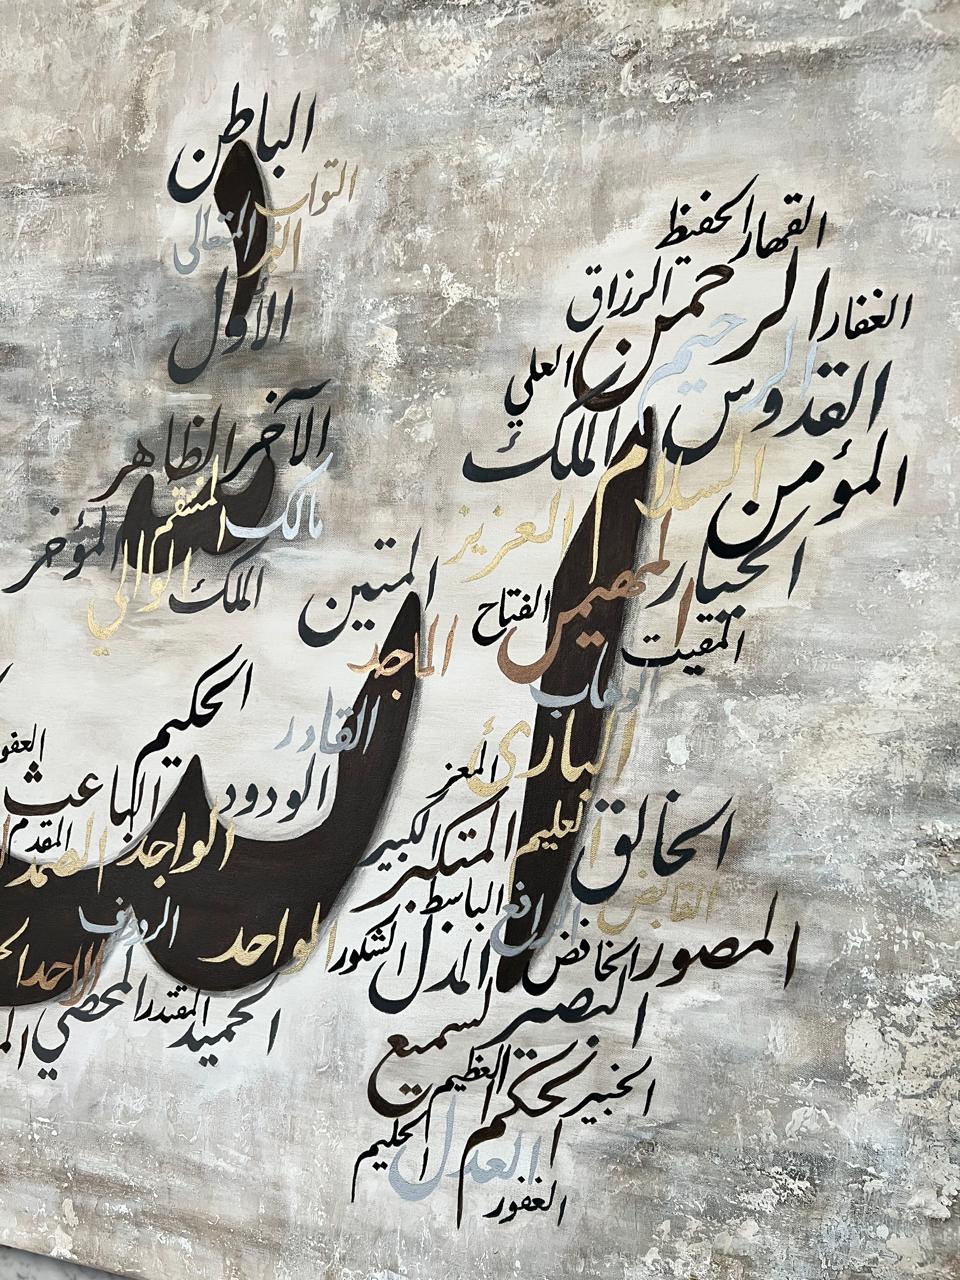 الباطن
التواب
البر
المتعالي
الأول
الآخر
الظاهر
مالك
المنتقم
المؤخر
الملك
الوالي
القهار
الحفيظ
الرحمن
الرزاق
الغفار
الرحيم
العلي
القدوس
الملك
السلام
المؤمن
العزيز
الجبار
المهيمن
الفتاح
المقيت
الوهاب
البارئ
المعز
العليم
الخالق
المتكبر
الكبير
القابض
الباسط
الرافع
المصور
الخافض
المذل
الشكور
البصير
السميع
العظيم
الحكم
الخبير
العدل
الحليم
الغفور
المتين
الماجد
القادر
الحكيم
الودود
الباعث
العفو
الواجد
المقدم
الصمد
الرؤوف
الواحد
الاحد
المحصي
المقتدر
الحميد